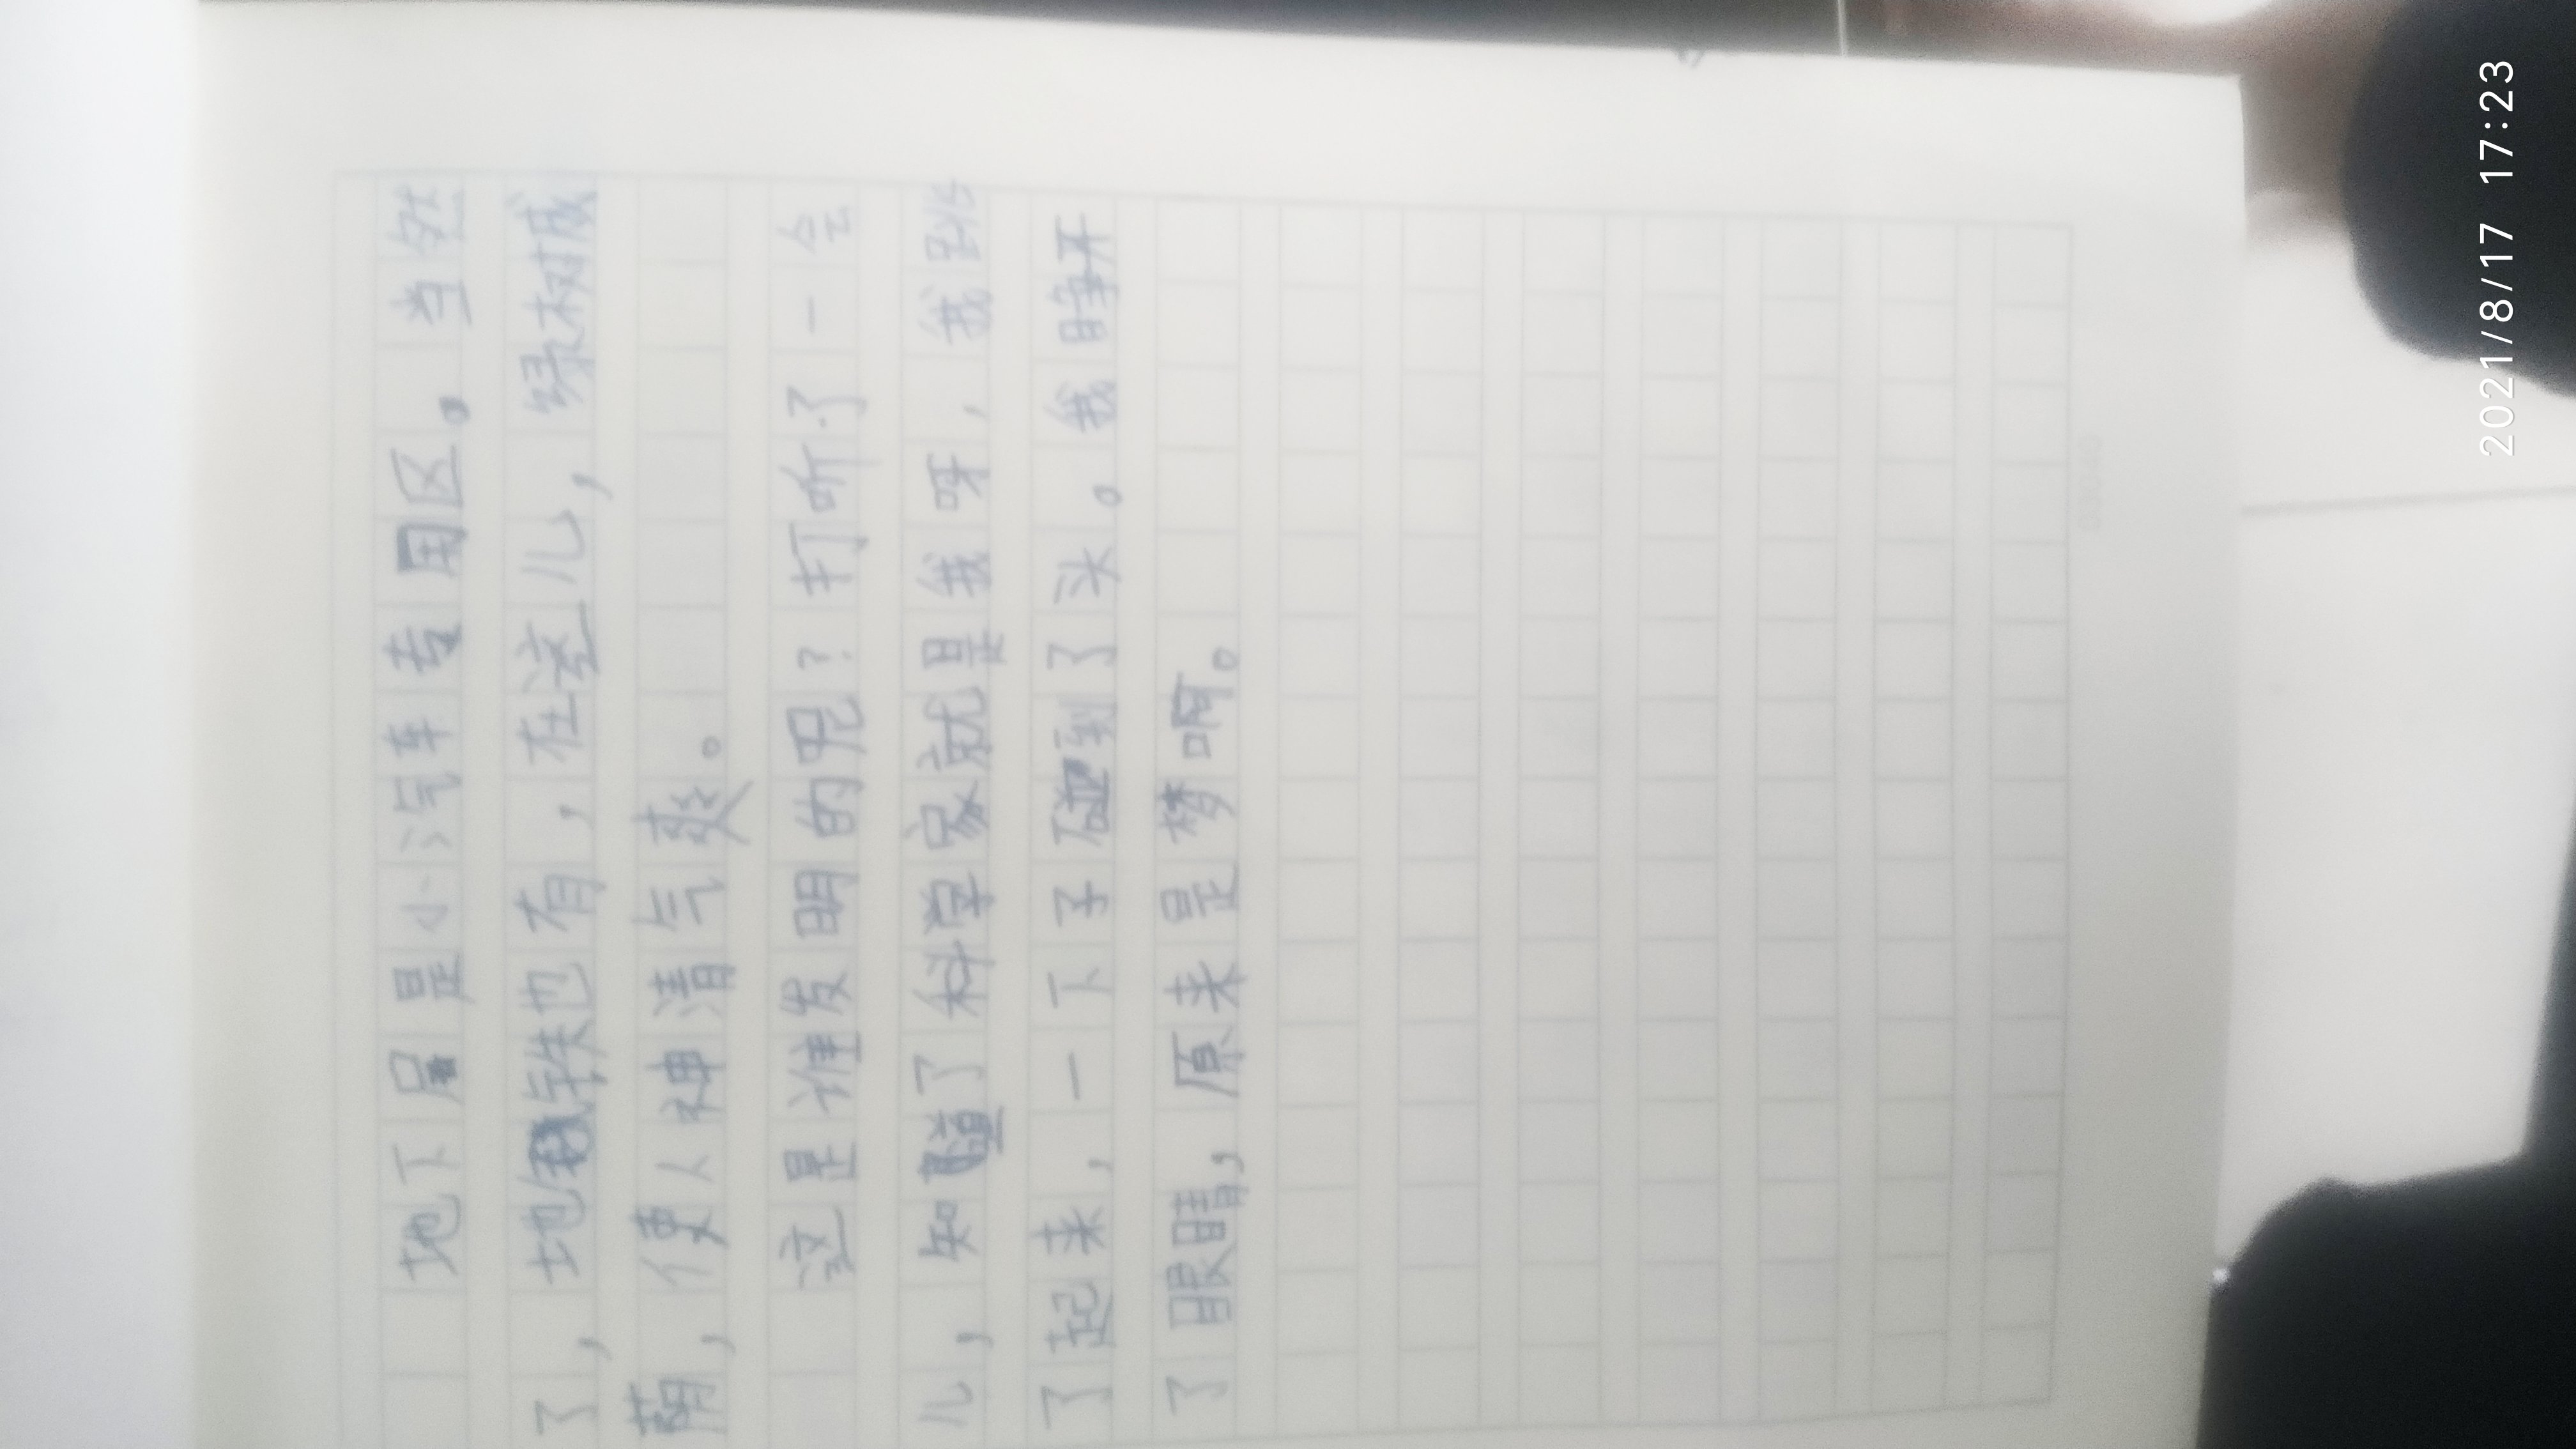 地下层是小汽车专用区。当然
了，地铁也有，在这儿，绿树成
荫，使人神清气爽。
这是谁发明的呢？打听了一会
儿，知道了科学家就是我呀，我跳
了起来，一下子碰到了头。我睁开
了眼睛，原来是梦啊。
2021/8/17 17:23